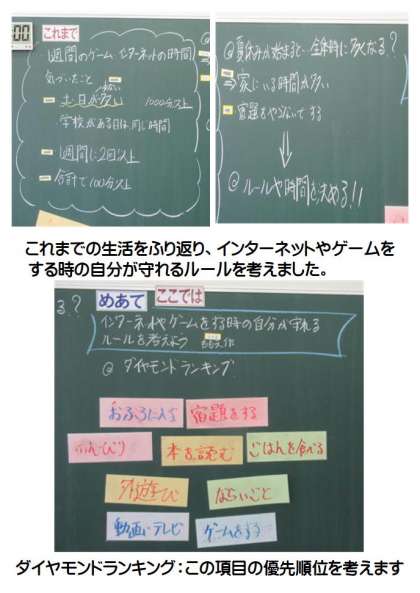 :00
これまで
1週間のゲーム、インターネットの時間
気づいたこと
土日が多い 1000分以上
学校がある日は同じ時間
1週間に2回以上
合計で100分以上
@夏休みが始まると、全体時に多くなる?
⇒家にいる時間が多い
宿題をやらないでする
@ルールや時間を決める!!
これまでの生活をふり返り、インターネットやゲームを
する時の自分が守れるルールを考えました。
る?
めあて ここでは
インターネットやゲームをする時の自分が守れる
ルールを考えよう
@ダイヤモンドランキング
おふろに入る 宿題をする
のんびり 本を読む ごはんを食べる
外遊び ならいごと
動画・テレビ ゲームをする
ダイヤモンドランキング:この項目の優先順位を考えます